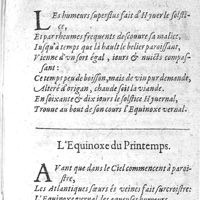 LEs humeurs superflus fait d'Hyuer le solsti-
ce,
Et par rheumes frequents descouure sa malice,
Iusqu'à temps que là hault le belier paroissant,
Vienne d'vn sort égal, iours & nuicts compas-
sant:
Ce temps peu de boisson, mais de vin pur demande,
Alteré d'origan, chaude soit la viande.
En soixante & dix iours le solstice Hyuernal,
Trouue au bout de son cours l'Equinoxe vernal.
L'Equinoxe du Printemps.
AVant que dans le Ciel commencent à paroi-
stre,
Les Atlantiques sœurs és veines fait surcroistre:
L'Equinoxe vernal les